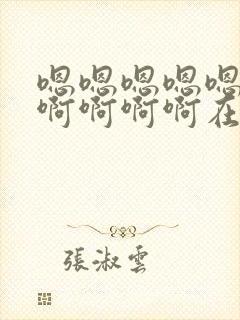 嗯嗯嗯嗯嗯
啊啊啊啊在
張淑雲